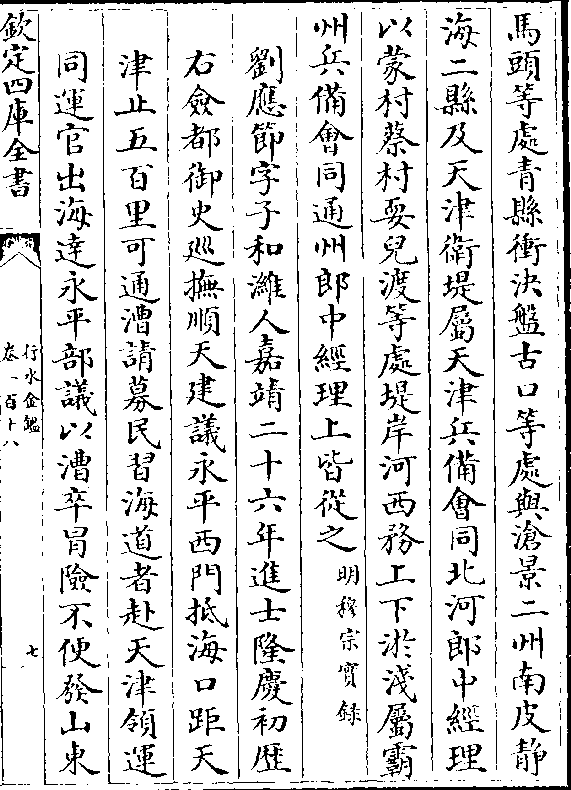 馬頭等處青縣衝決盤古口等處與滄景二州南皮靜
海二縣及天津衛堤屬天津兵備會同北河郎中經理
以蒙村蔡村耍兒渡等處堤岸河西務上下淤淺屬霸
州兵備會同通州郎中經理上皆從之明穆宗實錄
劉應節字子和濰人嘉靖二十六年進士隆慶初歷
右僉都御史巡撫順天建議永平西門抵海口距天
津止五百里可通漕請募民習海道者赴天津領運
同運官出海達永平部議以漕卒冒險不便發山東
欽定四庫全書
行水金鑑
卷一百十八
七